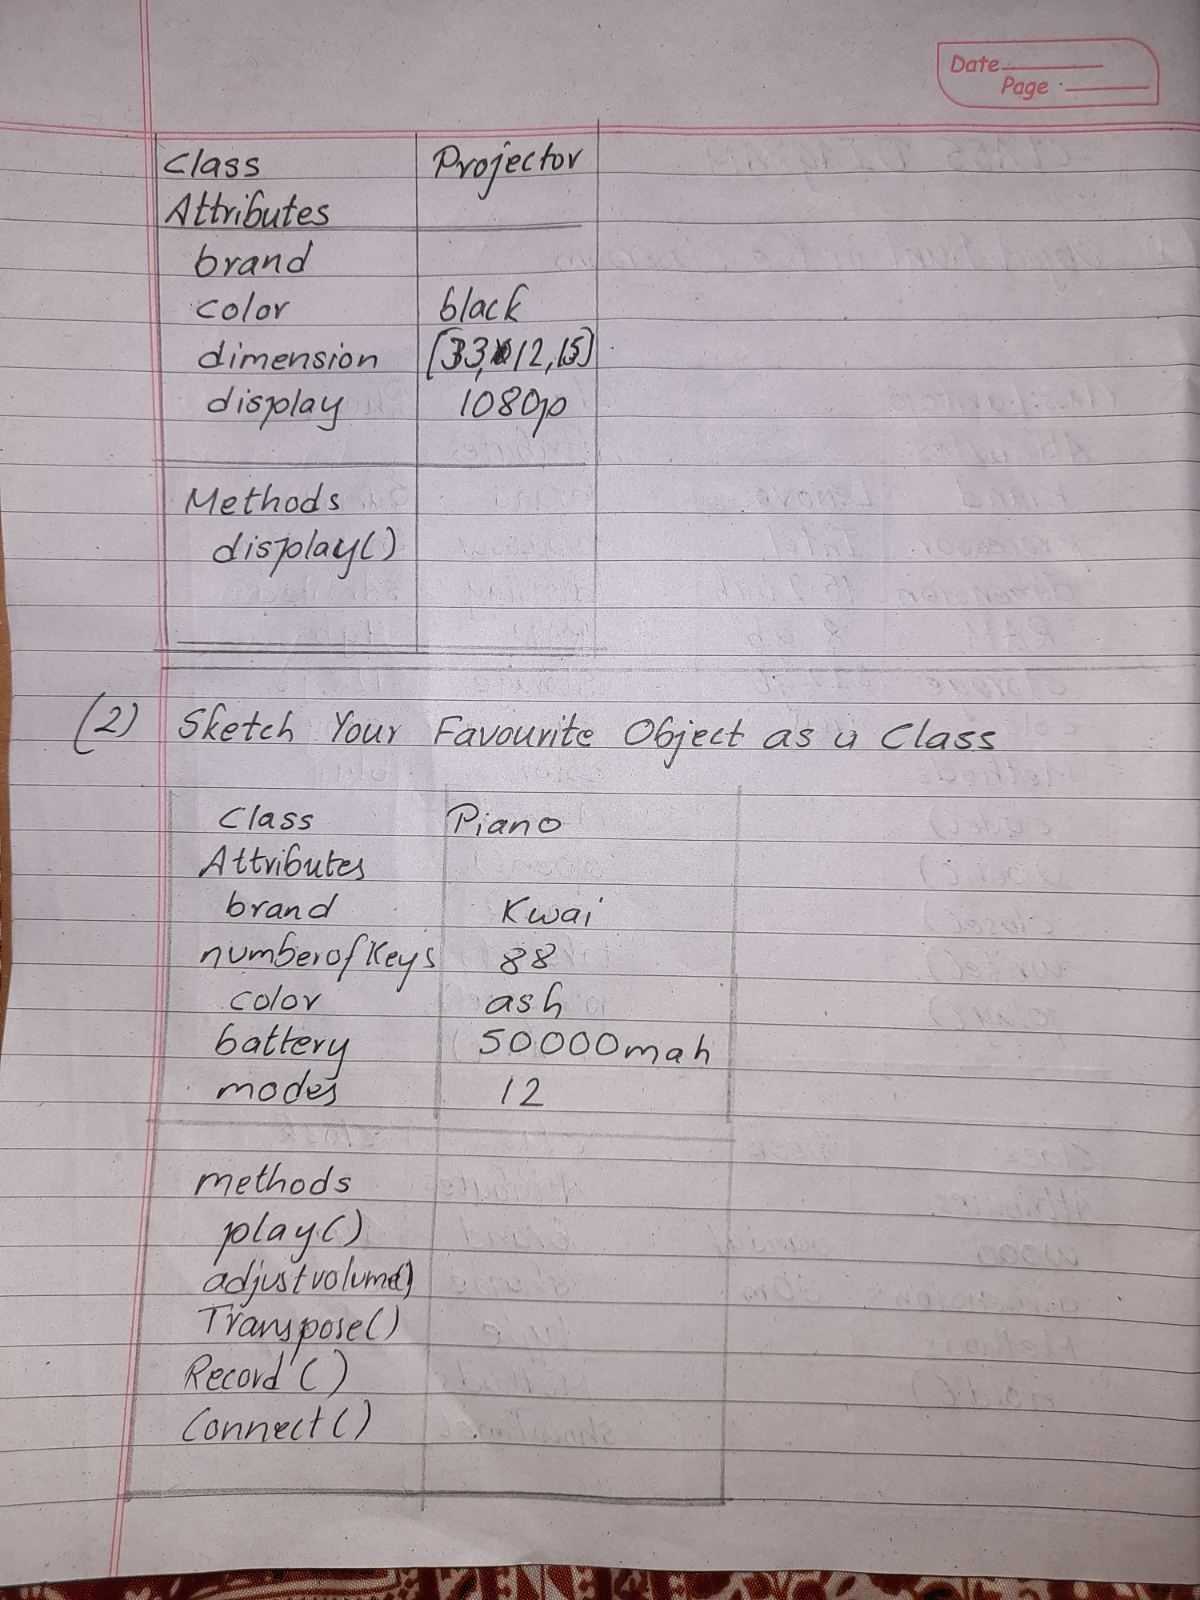 Date
Page
Class Projector
Attributes
brand
color black
dimension [33,12,15]
display 1080p
Methods
display()
(2) Sketch Your Favourite Object as a Class
Class Piano
Attributes
brand Kwai
numberofKeys 88
color ash
battery 50000mah
modes 12
methods
play()
adjustvolume()
Transpose()
Record()
Connect()